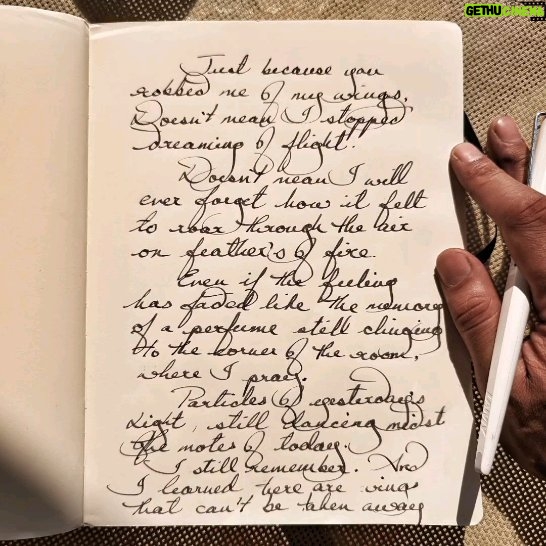 GETHU CINEMA
Just because you
robbed me of my wings,
Doesn't mean I stopped
dreaming of flight.
Doesn't mean I will
ever forget how it felt
to roar through the air
on feather's of fire.
Even if the feeling
has faded like the memory
of a perfume still clinging
to the corner of the room,
where I pray.
Particles of yesterday's
Light, still dancing midst
the motes of today.
I still remember. And
I learned there are
that can't be taken away